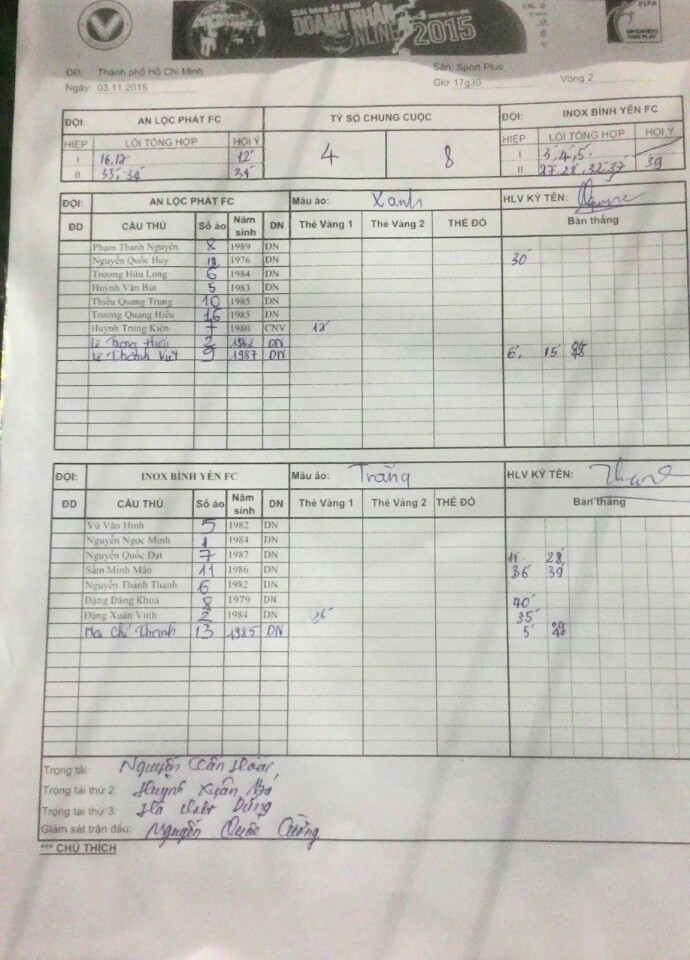 Giải bóng đá mini
DOANH NHÂN
ONLINE 2015
FIFA
MY GAME IS
FAIR PLAY
ĐĐ: Thành phố Hồ Chí Minh Sân: Sport Plus
Ngày: 03.11.2015 Giờ 17g30 Vòng 2
ĐỘI: AN LỘC PHÁT FC TỶ SỐ CHUNG CUỘC ĐỘI: INOX BÌNH YÊN FC
HIỆP LỖI TỔNG HỢP HỘI Ý 4 8 HIỆP LỖI TỔNG HỢP HỘI Ý
I 16, 17 12' I 3, 4, 5
II 33, 34 II 27, 28, 32, 37 39
ĐỘI: AN LỘC PHÁT FC Màu áo: Xanh HLV KÝ TÊN:
ĐD CẦU THỦ Số áo Năm sinh DN Thẻ Vàng 1 Thẻ Vàng 2 THẺ ĐỎ Bàn thắng
Phạm Thanh Nguyên 8 1989 DN
Nguyễn Quốc Huy 1976 DN 30'
Trương Hữu Long 6 1984 DN
Huỳnh Văn Bút 5 1983 DN
Thiều Quang Trung 10 1985 DN
Trương Quang Hiếu 16 1985 DN
Huỳnh Trung Kiên 7 1980 CNV 12'
Lê Trọng Hiếu 2 1982 DN
Lê Thành Việt 9 1987 DN 6' 15'
ĐỘI: INOX BÌNH YÊN FC Màu áo: Trắng HLV KÝ TÊN:
ĐD CẦU THỦ Số áo Năm sinh DN Thẻ Vàng 1 Thẻ Vàng 2 THẺ ĐỎ Bàn thắng
Vũ Văn Hinh 5 1982 DN
Nguyễn Ngọc Minh 1 1984 DN
Nguyễn Quốc Đạt 7 1987 DN 11' 28'
Sầm Minh Mẫn 11 1986 DN 36 39'
Nguyễn Thành Thanh 6 1982 DN
Đặng Đăng Khoa 8 1979 DN 40'
Đặng Xuân Vinh 2 1984 DN 35'
Mai Chí Thanh 13 1985 DN 5'
Trọng tài: Nguyễn
Trọng tài thứ 2: Huỳnh Xuân
Trọng tài thứ 3: Dũng
Giám sát trận đấu: Nguyễn Quốc Cường
*** CHÚ THÍCH